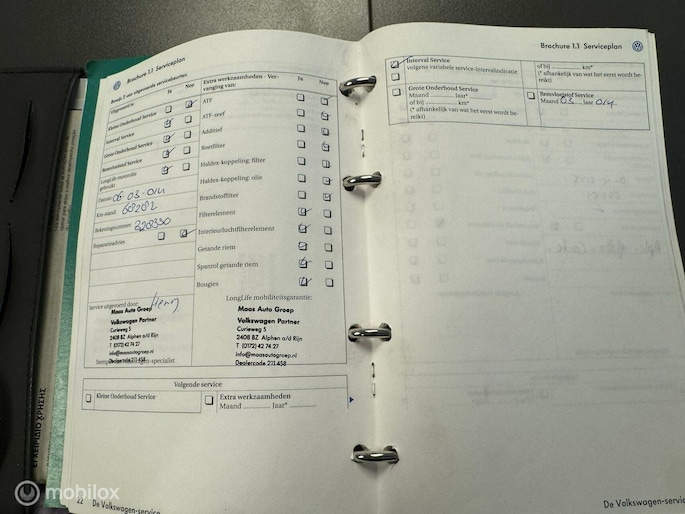 Brochure 1.1 Serviceplan
Bewijs
Uitgevoerd
Ja Nee
Kleine Onderhoud Service
Interval Service
Grote Onderhoud Service
Remvloeistof Service
LongLife motorolie
gebruikt
Datum: 06-03-014
Km-stand: 68282
Rekeningnummer: 328330
Reparatieadvies
Extra werkzaamheden - Ver-
vanging van:
Ja Nee
ATF
ATF-zeef
Additief
Roetfilter
Haldex-koppeling: filter
Haldex-koppeling: olie
Brandstoffilter
Filterelement
Interieurluchtfilterelement
Getande riem
Spanrol getande riem
Bougies
Service uitgevoerd door: Henry
Maas Auto Groep
Volkswagen Partner
Curieweg 5
2408 BZ Alphen a/d Rijn
T (0172) 42 74 27
info@maasautogroep.nl
Dealercode 211458
LongLife mobiliteitsgarantie:
Maas Auto Groep
Volkswagen Partner
Curieweg 5
2408 BZ Alphen a/d Rijn
T (0172) 42 74 27
info@maasautogroep.nl
Dealercode 211458
Volgende service
Kleine Onderhoud Service
Extra werkzaamheden
Maand ............ Jaar* ............
22 De Volkswagen-service
Brochure 1.1 Serviceplan
Interval Service
volgens variabele service-intervalindicatie
of bij ............ km*
(* afhankelijk van wat het eerst wordt be-
reikt)
Grote Onderhoud Service
Maand ............ Jaar* ............
of bij ............ km*
(* afhankelijk van wat het eerst wordt be-
reikt)
Remvloeistof Service
Maand 03 Jaar 014
De Volkswagen-service
ΕΓΧΕΙΡΙΔΙΟ ΧΡΗΣΗΣ
mobilox